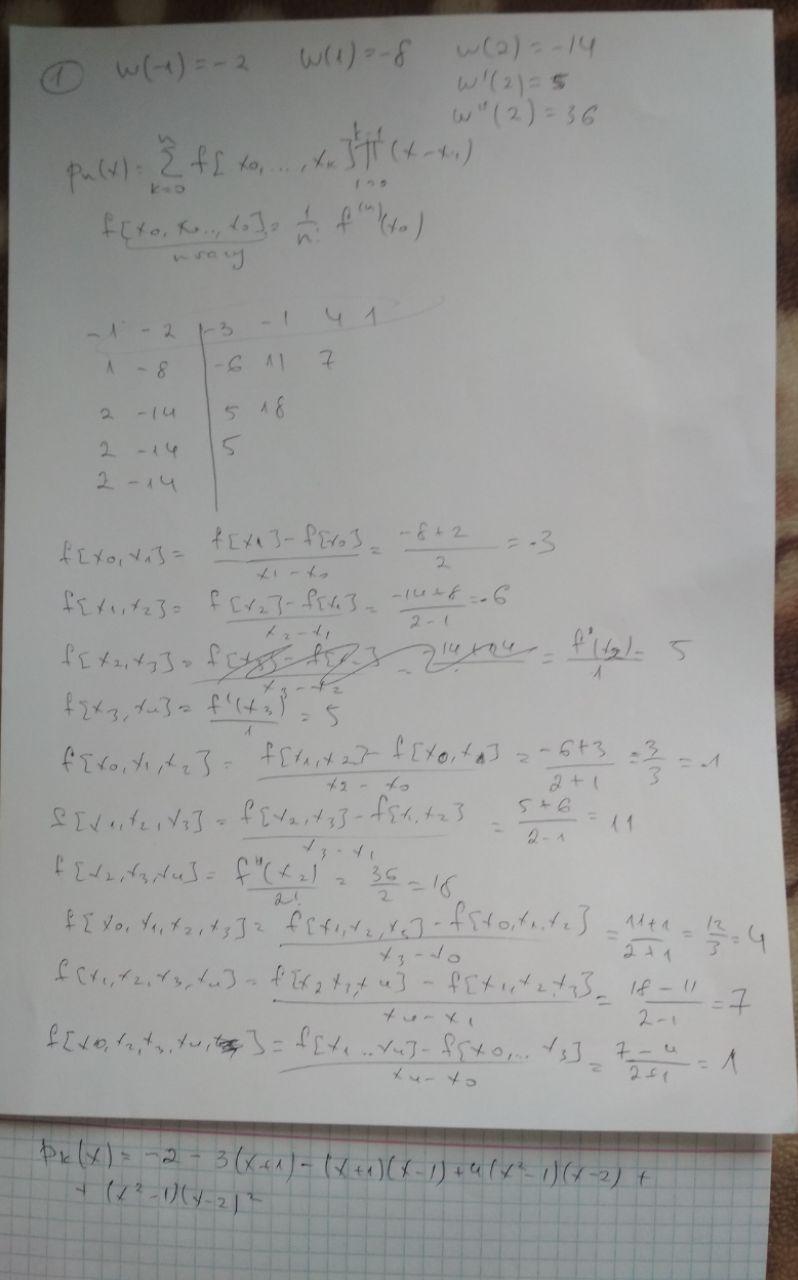 ① W(-1) = -2 W(1) = -8 W(2) = -14
W'(2) = 5
W''(2) = 36
pₙ(x) = Σₖ₌₀ⁿ f[x₀, ..., xₖ] Πᵢ₌₀ᵏ⁻¹ (x - xᵢ)
f[x₀, x₀..., x₀] = 1/n! f⁽ⁿ⁾(x₀)
n razy
-1 -2 | -3 -1 4 1
1 -8 | -6 11 7
2 -14 | 5 18
2 -14 | 5
2 -14 |
f[x₀, x₁] = (f[x₁] - f[x₀])/(x₁ - x₀) = (-8+2)/2 = -3
f[x₁, x₂] = (f[x₂] - f[x₁])/(x₂ - x₁) = (-14+8)/(2-1) = -6
f[x₂, x₃] = = f'(x₂)/1 = 5
f[x₃, x₄] = f'(x₃)/1 = 5
f[x₀, x₁, x₂] = (f[x₁, x₂] - f[x₀, x₁])/(x₂ - x₀) = (-6+3)/(2+1) = -3/3 = -1
f[x₁, x₂, x₃] = (f[x₂, x₃] - f[x₁, x₂])/(x₃ - x₁) = (5+6)/(2-1) = 11
f[x₂, x₃, x₄] = f''(x₂)/2! = 36/2 = 18
f[x₀, x₁, x₂, x₃] = (f[x₁, x₂, x₃] - f[x₀, x₁, x₂])/(x₃ - x₀) = (11+1)/(2+1) = 12/3 = 4
f[x₁, x₂, x₃, x₄] = (f[x₂ x₃, x₄] - f[x₁, x₂, x₃])/(x₄ - x₁) = (18-11)/(2-1) = 7
f[x₀, x₂, x₃, x₄, ] = (f[x₁ .. x₄] - f[x₀, ... x₃])/(x₄ - x₀) = (7-4)/(2+1) = 1
pₖ(x) = -2 - 3(x+1) - (x+1)(x-1) + 4(x²-1)(x-2) +
+ (x²-1)(x-2)²